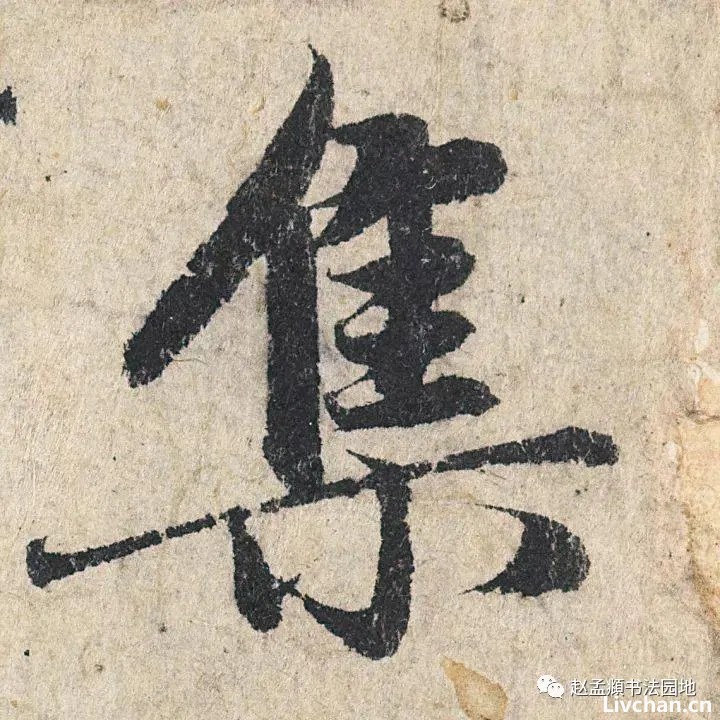 集
赵孟頫书法园地
Livchan.cn